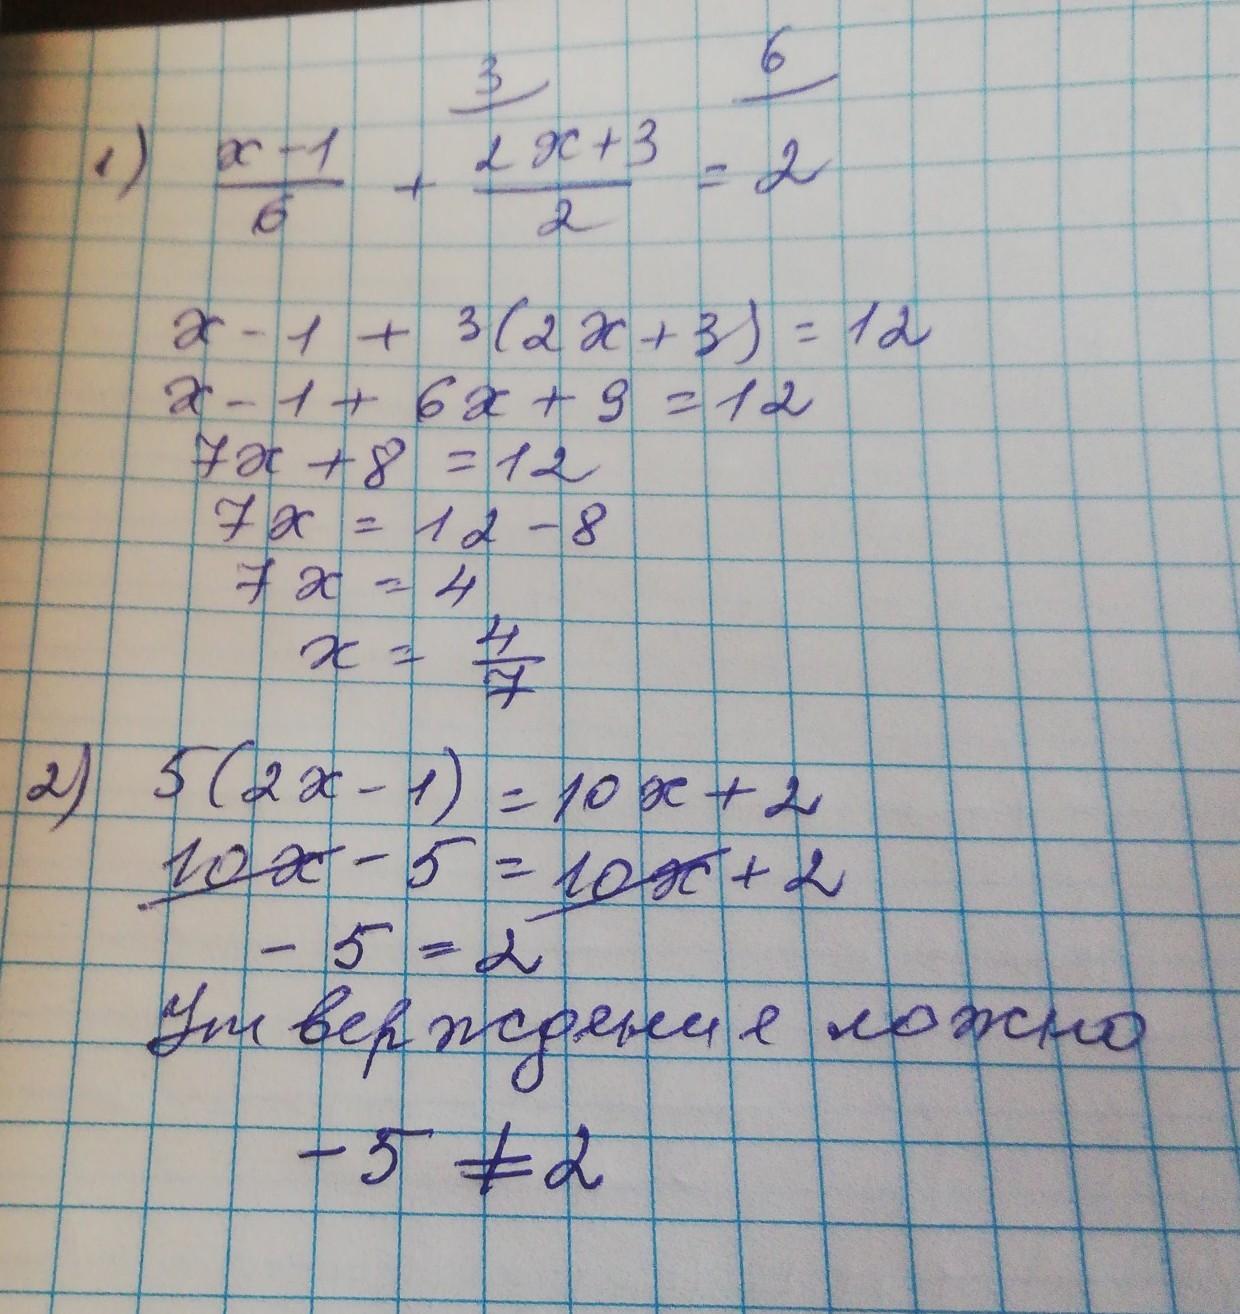 3 6
1) x-1/6 + 2x+3/2 = 2
x-1 + 3(2x+3) = 12
x-1 + 6x+9 = 12
7x+8 = 12
7x = 12-8
7x = 4
x = 4/7
2) 5(2x-1) = 10x+2
10x-5 = 10x+2
-5 = 2
Утверждение ложно
-5 ≠ 2